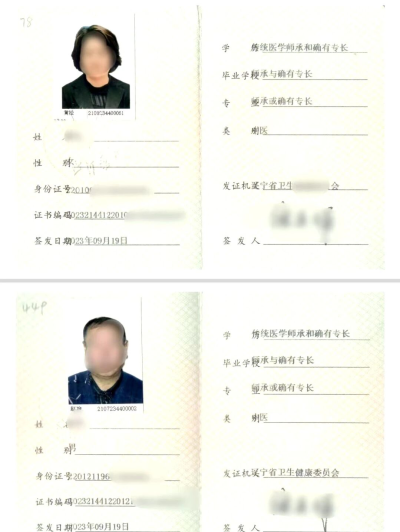 78
2107234400001
姓
性 别
身份证号2010
证书编码0232144122010
签发日期2023年09月19日
学 历传统医学师承和确有专长
毕业学校师承与确有专长
专 业师承或确有专长
类 别中医
发证机关辽宁省卫生
会
签 发 人
449
2107234400002
姓
性 别男
身份证号20121196
证书编码0232144122012
签发日期2023年09月19日
学 历传统医学师承和确有专长
毕业学校师承与确有专长
专 业师承或确有专长
类 别中医
发证机关辽宁省卫生健康委员会
签 发 人